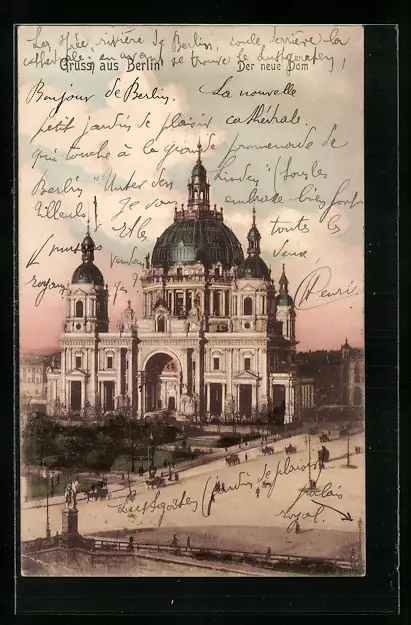 La Spée, rivière de Berlin, coule derrière la
cathédrale; en avant se trouve le Lustgarten,
Gruss aus Berlin
Der neue Dom
Bonjour de Berlin. La nouvelle
petit jardin de plaisir cathédrale.
qui touche à la grande promenade de
Berlin "Unter den Linden" (sous les
Tilleuls) Je vous embrasse bien fort
toutes les
deux,
Henri.
Lustgarten (jardin de plaisir)
palais
royal